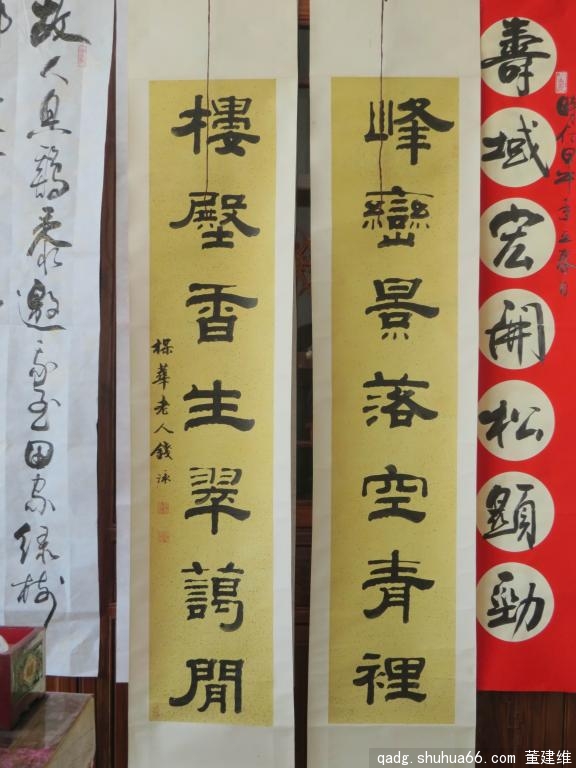 壽域宏開松顯勁
峰巒景落空青裡
樓壂香生翠藹閒
楳華老人錢泳
故人具鷄黍邀我至田家綠樹
qadg.shuhua66.com 董建维